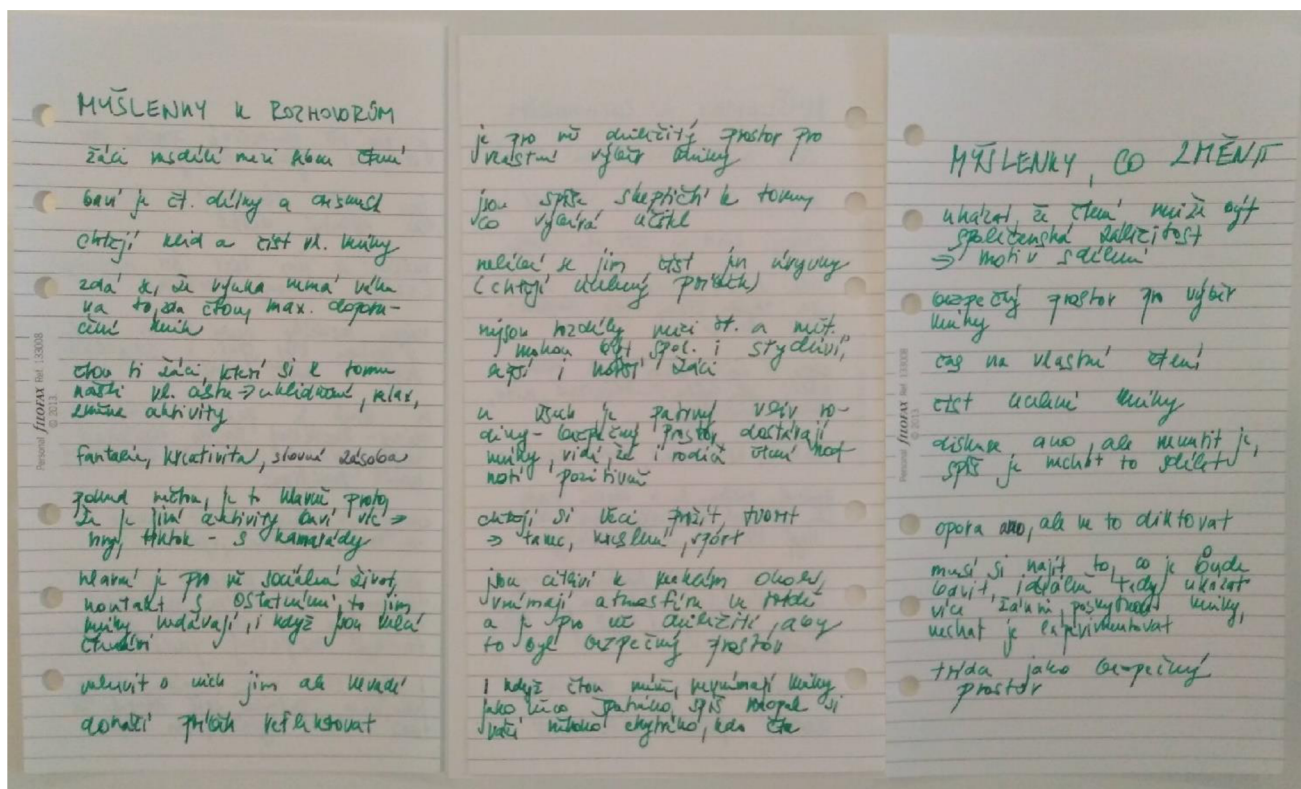 MYŠLENKY K ROZHOVORŮM
žáci nesdílí mezi sebou čtení
baví je čt. dílny a
chtějí klid a číst vl. knihy
zdá se, že výuka nemá vliv
na to, zda čtou, max. doporu-
čení knih
čtou ti žáci, kteří si k tomu
našli vl. cestu ⇒ uklidnění, relax,
aktivity
fantazie, kreativita, slovní zásoba
pokud nečtou, je to hlavně proto,
že je jiné aktivity baví víc ⇒
hry, tiktok - s kamarády
hlavní je pro ně sociální život,
kontakt s ostatními, to jim
knihy nedávají, i když jsou velcí
čtenáři
mluvit o nich jim ale nevadí
dokáží příběh reflektovat
Personal FILOFAX Ref. 133008
© 2013
je pro ně důležitý prostor pro
vlastní výběr knihy
jsou spíše skeptičtí k tomu,
co vybírá učitel
nelíbí se jim číst jen úryvky
(chtějí ucelený příběh)
nejsou rozdíly mezi čt. a nečt.
mohou být spol. i stydliví,
lepší i horší žáci
u všech je patrný vliv ro-
diny - bezpečný prostor, dostávají
knihy, vidí, že i rodiče čtení hod-
notí pozitivně
chtějí si věci prožít, tvořit
⇒ tanec, kreslení, sport
jsou citliví k okolí,
vnímají atmosféru ve třídě
a je pro ně důležité, aby
to byl bezpečný prostor
i když čtou méně, nevnímají knihy
jako něco špatného, spíš naopak si
váží někoho chytrého, kdo čte
MYŠLENKY, CO ZMĚNIT
ukázat, že čtení může být
společenská záležitost
⇒ motiv sdílení
bezpečný prostor pro výběr
knihy
čas na vlastní čtení
číst ucelené knihy
diskuse ano, ale nenutit je,
spíš je nechat to sdílet
opora ano, ale ne to diktovat
musí si najít to, co je bude
bavit, ideálně tedy ukázat
více žánrů, poskytnout knihy,
nechat je experimentovat
třída jako bezpečný
prostor
Personal FILOFAX Ref. 133008
© 2013